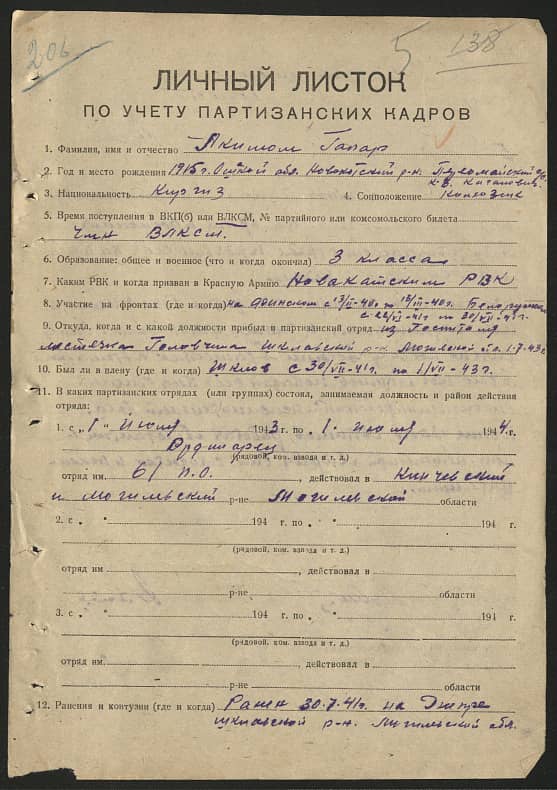 206
5 138
ЛИЧНЫЙ ЛИСТОК
ПО УЧЕТУ ПАРТИЗАНСКИХ КАДРОВ
1. Фамилия, имя и отчество Акимом Гапар
2. Год и место рождения 1915г. Ошской обл. Новокатский р-н.
3. Национальность Киргиз 4. Соцположение Колхозник
5. Время поступления в ВКП(б) или ВЛКСМ, № партийного или комсомольского билета
Член ВЛКСМ.
6. Образование: общее и военное (что и когда окончил) 3 класса
7. Каким РВК и когда призван в Красную Армию Новакатским РВК
8. Участие на фронтах (где и когда) на финском с 13/II-40г. по 13/III-40г.
с 22/VI-41г по 30/VII-41г.
9. Откуда, когда и с какой должности прибыл в партизанский отряд из
местечка Головчина Шкловский р-н 1-7-43г.
10. Был ли в плену (где и когда) Шклов с 30/VII-41г. по 1/VII-43г.
11. В каких партизанских отрядах (или группах) состоял, занимаемая должность и район действия
отряда:
1. с „1" июля 1943 г. по „1" июля 1944 г.
Ординарец
(рядовой, ком. взвода и т. д.)
отряд им 61 П.О. , действовал в
и Могилевский р-не Могилевской области
2. с „ " 194 г. по „ " 194 г.
(рядовой, ком. взвода и т. д.)
отряд им , действовал в
р-не области
3. с „ " 194 г. по „ " 194 г.
(рядовой, ком. взвода и т. д.)
отряд им , действовал в
р-не области
12. Ранения и контузии (где и когда) Ранен 30.7.41г. на Днепре
Шкловской р-н. обл.